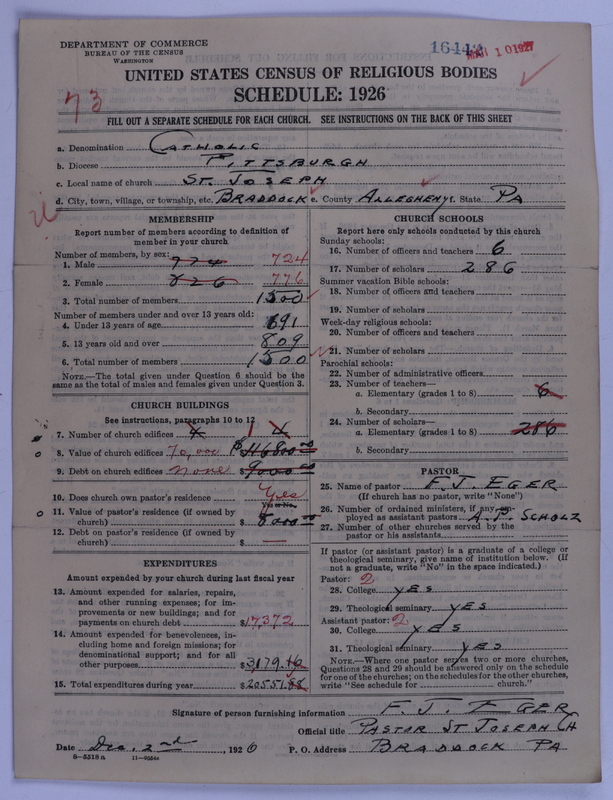 DEPARTMENT OF COMMERCE
BUREAU OF THE CENSUS
WASHINGTON
MAR 10 1927
UNITED STATES CENSUS OF RELIGIOUS BODIES
SCHEDULE: 1926
73
FILL OUT A SEPARATE SCHEDULE FOR EACH CHURCH. SEE INSTRUCTIONS ON THE BACK OF THIS SHEET
a. Denomination CATHOLIC
b. Diocese PITTSBURGH
c. Local name of church ST. JOSEPH
d. City, town, village, or township, etc. BRADDOCK e. County ALLEGHENY f. State PA
MEMBERSHIP
Report number of members according to definition of member in your church
Number of members, by sex:
1. Male 724
2. Female 776
3. Total number of members 1500
Number of members under and over 13 years old:
4. Under 13 years of age 691
5. 13 years old and over 809
6. Total number of members 1500
NOTE.—The total given under Question 6 should be the same as the total of males and females given under Question 3.
CHURCH BUILDINGS
See instructions, paragraphs 10 to 12
7. Number of church edifices 4 1 4
8. Value of church edifices 70,000 $ 116800.00
9. Debt on church edifices none $ 9000.00
10. Does church own pastor's residence Yes
11. Value of pastor's residence (if owned by church) $ 8000.00
12. Debt on pastor's residence (if owned by church) $ —
EXPENDITURES
Amount expended by your church during last fiscal year
13. Amount expended for salaries, repairs, and other running expenses; for improvements or new buildings; and for payments on church debt $ 17,372
14. Amount expended for benevolences, including home and foreign missions; for denominational support; and for all other purposes $ 3179.16
15. Total expenditures during year $ 20551.88
CHURCH SCHOOLS
Report here only schools conducted by this church
Sunday schools:
16. Number of officers and teachers 6
17. Number of scholars 286
Summer vacation Bible schools:
18. Number of officers and teachers
19. Number of scholars
Week-day religious schools:
20. Number of officers and teachers
21. Number of scholars
Parochial schools:
22. Number of administrative officers
23. Number of teachers—
a. Elementary (grades 1 to 8) 6
b. Secondary
24. Number of scholars—
a. Elementary (grades 1 to 8) 286
b. Secondary
PASTOR
25. Name of pastor F. J. EGER
(If church has no pastor, write "None")
26. Number of ordained ministers, if any, employed as assistant pastors A. P. SCHOLZ
27. Number of other churches served by the pastor or his assistants
If pastor (or assistant pastor) is a graduate of a college or theological seminary, give name of institution below. (If not a graduate, write "No" in the space indicated.)
Pastor: 2
28. College YES
29. Theological seminary YES
Assistant pastor: 2
30. College YES
31. Theological seminary YES
NOTE.—Where one pastor serves two or more churches, Questions 28 and 29 should be answered only on the schedule for one of the churches; on the schedules for the other churches, write "See schedule for church."
Signature of person furnishing information F. J. EGER
Official title PASTOR ST JOSEPH CH
Date Dec. 2nd, 1926 P. O. Address BRADDOCK PA
8—5518a